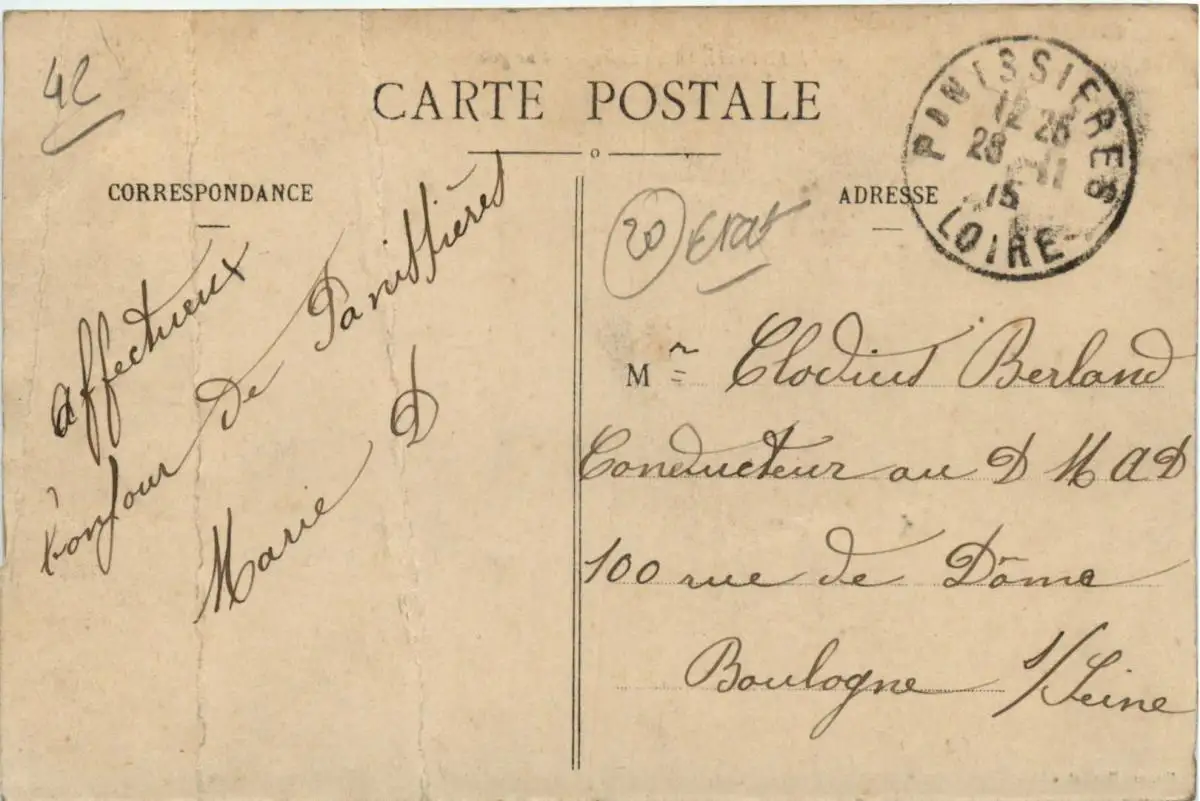 42
CARTE POSTALE
CORRESPONDANCE
Affectueux
bonjour de Panissières
Marie D
20 Etat
ADRESSE
PANISSIERES
12 26
28 11
15
LOIRE
Mr Clodius Berland
Conducteur au D M A D
100 rue de Dôme
Boulogne s/Seine